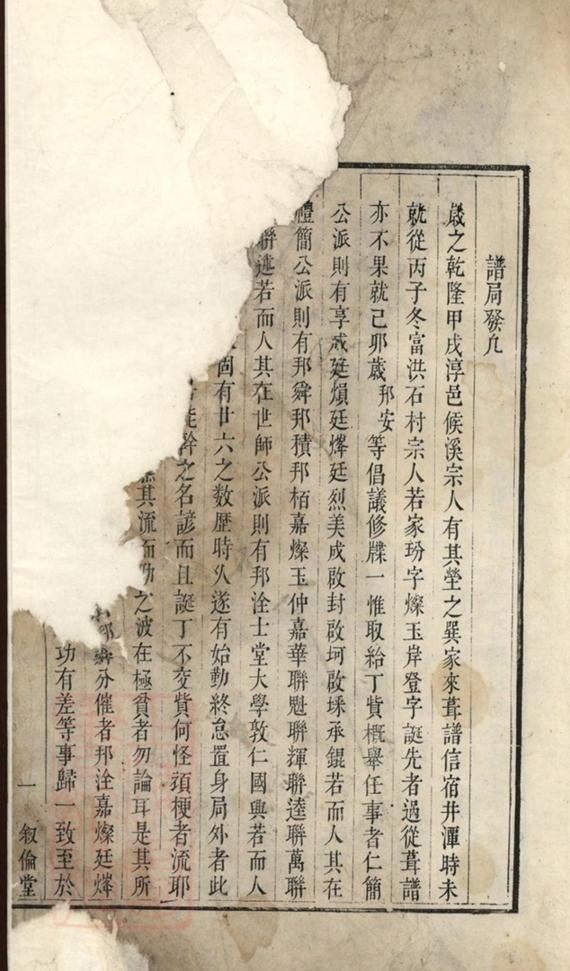 譜局發凡
歲之乾隆甲戌淳邑候溪宗人有其瑩之巽家來葺譜信宿井潭時未
就從丙子冬富洪石村宗人若家玢字燦玉岸登字誕先者過從葺譜
亦不果就己卯歲邦安等倡議修牒一惟取給丁貲概舉任事者仁簡
公派則有享成廷熉廷燁廷烈美成啟封啟坷啟垛承錕若而人其在
禮簡公派則有邦舜邦積邦栢嘉燦玉仲嘉華聯魁聯輝聯逵聯萬聯
聯進若而人其在世師公派則有邦洤士堂大學敦仁國興若而人
固有廿六之数歷時久遂有始勤終怠置身局外者此
能幹之名諺而且誕丁不交貲何怪頭梗者流耶
其流而助之波在極貧者勿論耳是其所
邦舜分催者邦洤嘉燦廷燁
功有差等事歸一致至於
一
叙倫堂